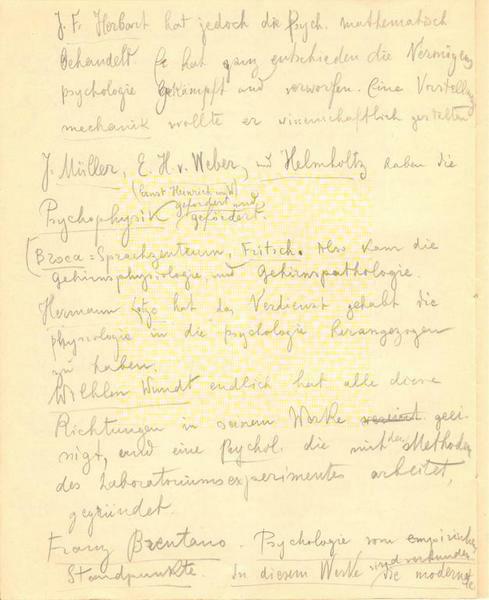 J. F. Herbart hat jedoch die Psych. mathematisch
behandelt. Er hat ganz entschieden die Vermögens
psychologie bekämpft und verworfen. Eine Vorstellungs
mechanik wollte er wissenschaftlich gestalten
J. Müller, E. H. v. Weber, und Helmholtz haben die
(Ernst Heinrich v. W)
Psychophysik gefördert und
gefördert.
(Broca = Sprachzentrum, Fritsch. Also kam die
Gehirnsphysiologie und Gehirnspathologie.
Hermann Lotze hat das Verdienst gehabt die
physiologie in die psychologie herangezogen
zu haben.
Wilhlem Wundt endlich hat alle diese
Richtungen in seinem Werke vereint geei-
nigt, und eine Psychol. die mit den Methoden
des Laboratoriumsexperimentes arbeitet,
gegründet.
Franz Brentano. Psychologie vom empirischen
Standpunkte. In diesem Werke sind
die moderne